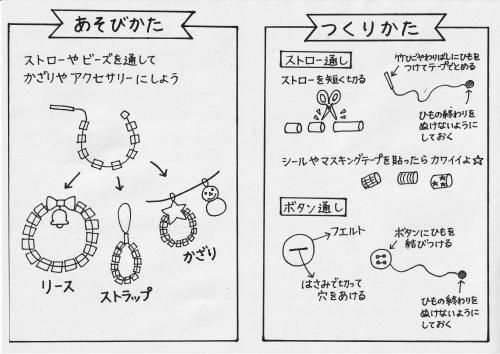 あそびかた
ストローやビーズを通して
かざりやアクセサリーにしよう
リース
ストラップ
かざり
つくりかた
ストロー通し
ストローを短く切る
竹ひごやわりばしにひもを
つけてテープでとめる
ひもの終わりを
ぬけないように
しておく
シールやマスキングテープを貼ったらカワイイよ☆
ボタン通し
フエルト
はさみで切って
穴をあける
ボタンにひもを
結びつける
ひもの終わりを
ぬけないように
しておく